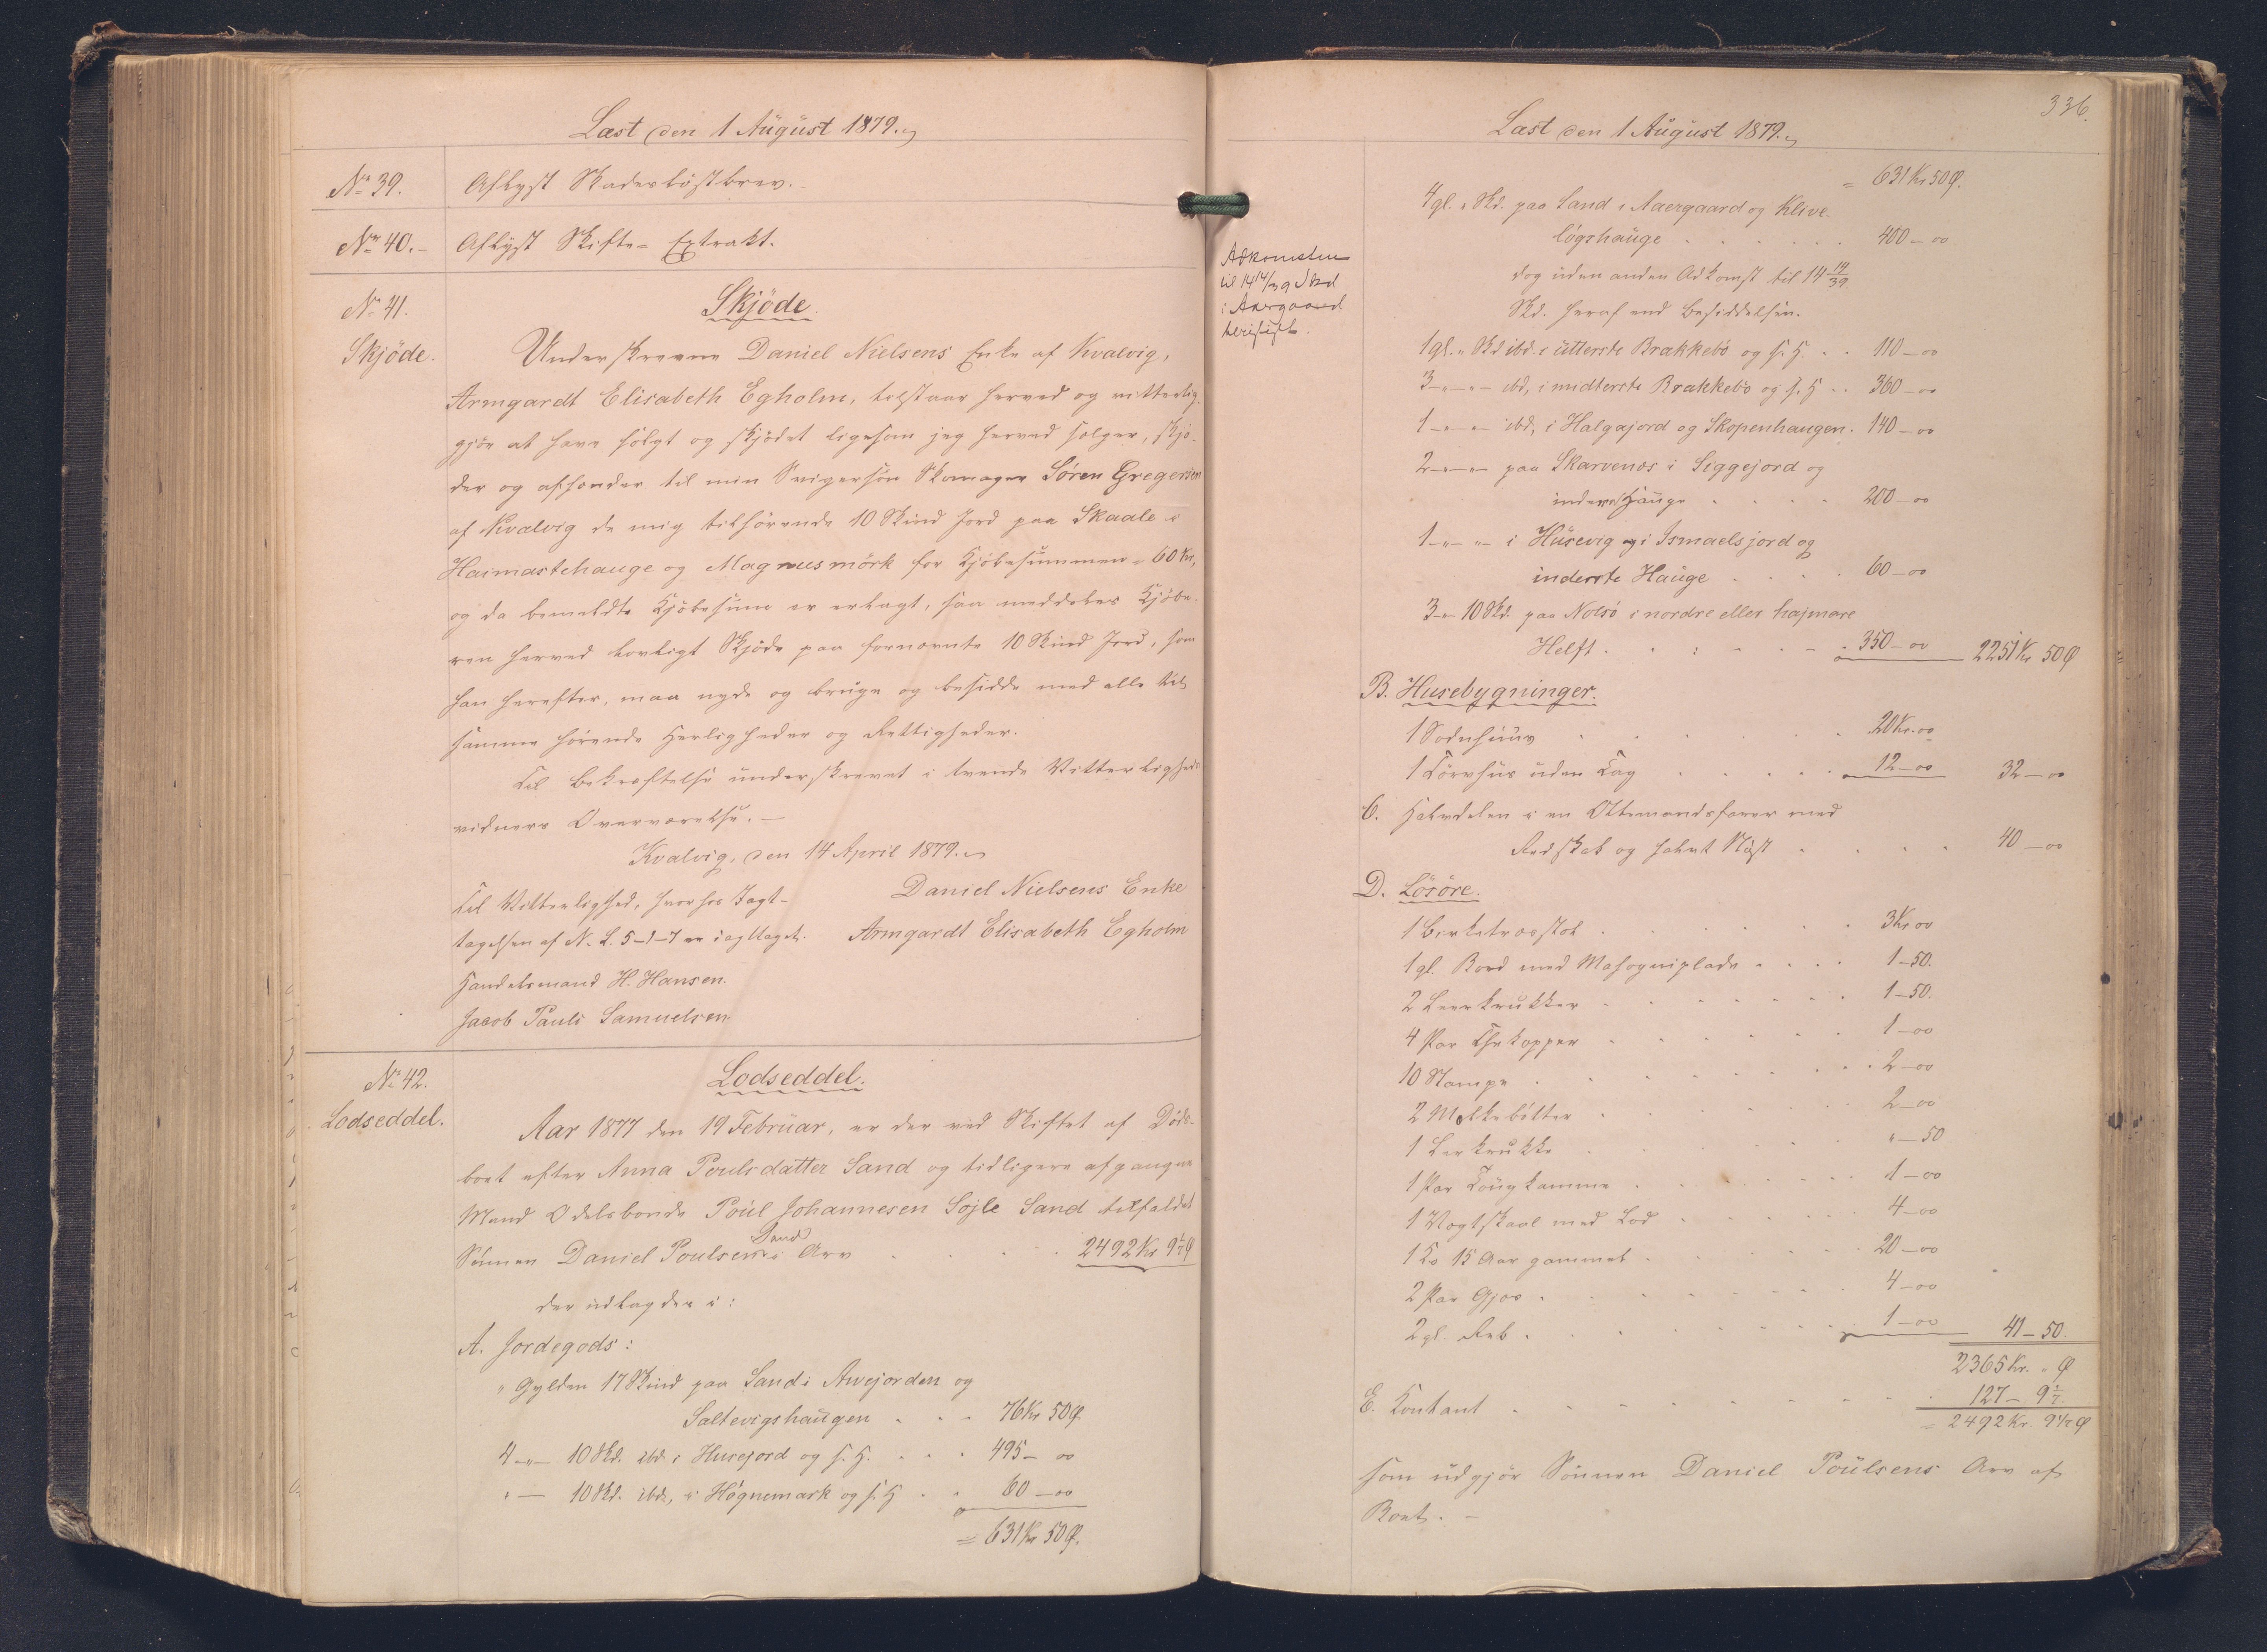 Læst den 1 August 1879.
No 39. Aflyst Skadesløsbrev.
No 40. Aflyst Skifte-Extrakt.
No 41. Skjöde.
Skjöde. Underskrevne Daniel Nielsens Enke af Kvalvig,
Armgardt Elisabeth Egholm, tilstaar herved og vitterlig-
gjör at have solgt og skjödet ligesom jeg herved sælger, skjö-
der og afhænder til min Svigersön Skomager Sören Gregersen
af Kvalvig de mig tilhörende 10 Skind Jord paa Skaale i
Haimastehauge og Magnusmörk for Kjöbesummen = 60 Kr,
og da bemeldte Kjöbesum er erlagt, saa meddeles Kjöbe-
ren herved lovligt Skjöde paa fornævnte 10 Skind Jord, som
han herefter maa nyde og bruge og besidde med alle til
samme hörende Herligheder og Rettigheder.
Til Bekræftelse underskrevet i tvende Vitterligheds-
vidners Overværelse. —
Kvalvig, den 14 April 1879.
Til Vitterlighed, hvorhos Iagt- Daniel Nielsens Enke
tagelsen af N. L. 5-1-7 er iagttaget. Armgardt Elisabeth Egholm
Handelsmand H. Hansen.
Jacob Pauli Samuelsen.
No 42. Lodseddel.
Lodseddel. Aar 1877 den 19 Februar, er der ved Skiftet af Döds-
boet efter Anna Poulsdatter Sand og tidligere afgangne
Mand Odelsbonde Poul Johannesen Söjle Sand tilfaldet
Sand
Sönnen Daniel Poulsen i Arv 2492 Kr 9 1/7 Ø
der udlagdes i:
A. Jordegods:
" Gylden 17 Skind paa Sand i Avejorden og
Saltevigshaugen . . . 76 Kr 50 Ø
4 -"- 10 Skd. ibd. i Husejord og s. H. . . . 495 - 00
" — 10 Skd. ibd, i Høgnemark og s. H . . 60 - 00
= 631 Kr 50 Ø.
336.
Læst den 1 August 1879.
= 631 Kr 50 Ø.
4 gl. " Skd. paa Sand i Aaergaard og Klive-
løgshauge . . . 400 - 00
dog uden anden Adkomst til 14 14/39
Skd. heraf end Besiddelsen.
Adkomsten
til 14 14/39 Skd
i Aargaard
berigtiget.
1 gl. " Skd ibd. i utterste Brækkebö og s. H. . . 110 - 00
3 -"-"- ibd, i midterste Brækkebö og s. H . . 360 - 00
1 -"-"- ibd, i Halgajord og Skopenhaugen. 140 - 00
2 -"-"- paa Skarvenæs i Siggejord og
inderste Hauge . . . . 200 - 00
1 -"-"- i Husevig og i Ismaelsjord og
inderste Hauge . . . . 60 - 00
3 -"- 10 Skd. paa Nolsö i nordre eller hajmare
Helft . . . . . 350 - 00 2251 Kr 50 Ø
B. Husebygninger.
1 Sodnhuus . . . 20 Kr. 00
1 Törvhus uden Tag . . . 12 - 00 32 - 00
C. Halvdelen i en Ottemandsfarer med
Redskab og halvt Nöst . . . . 40 - 00
D. Lösöre.
1 Birketræsstol . . . 3 Kr 00
1 gl. Bord med Mahogniplade . . . . 1 - 50.
2 Leerkrukker . . . 1 - 50.
4 Par Thekopper . . . 1 - 00
10 Stampe . . . 2 - 00
2 Melkebötter . . . 2 - 00
1 Leerkrukke . . . " - 50
1 Par Tougkamme . . . 1 - 00
1 Vægtskaal med Lod . . . 4 - 00
1 Ko 15 Aar gammel . . . 20 - 00
2 Par Gjæs . . . 4 - 00
2 gl. Reb . . . 1 - 00 41 - 50.
2365 Kr. " Ø
E. Kontant . . . 127 - 9 1/7.
= 2492 Kr. 9 1/7 Ø
som udgjör Sönnen Daniel Poulsens Arv af
Boet. —